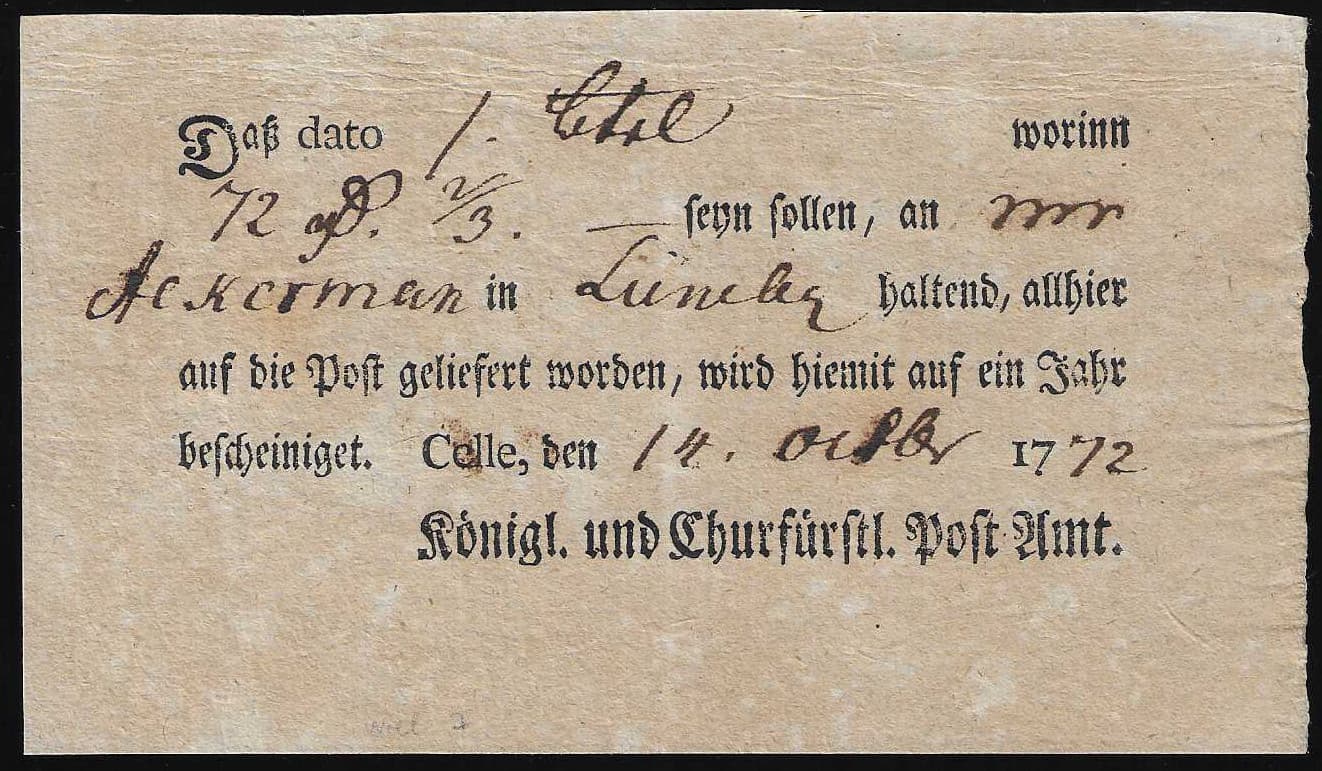 Daß dato 1. worinn
72 2/3. — seyn sollen, an
Ackerman in Lüneb haltend, allhier
auf die Post geliefert worden, wird hiemit auf ein Jahr
bescheiniget. Celle, den 14. octbr 1772
Königl. und Churfürstl. Post Amt.